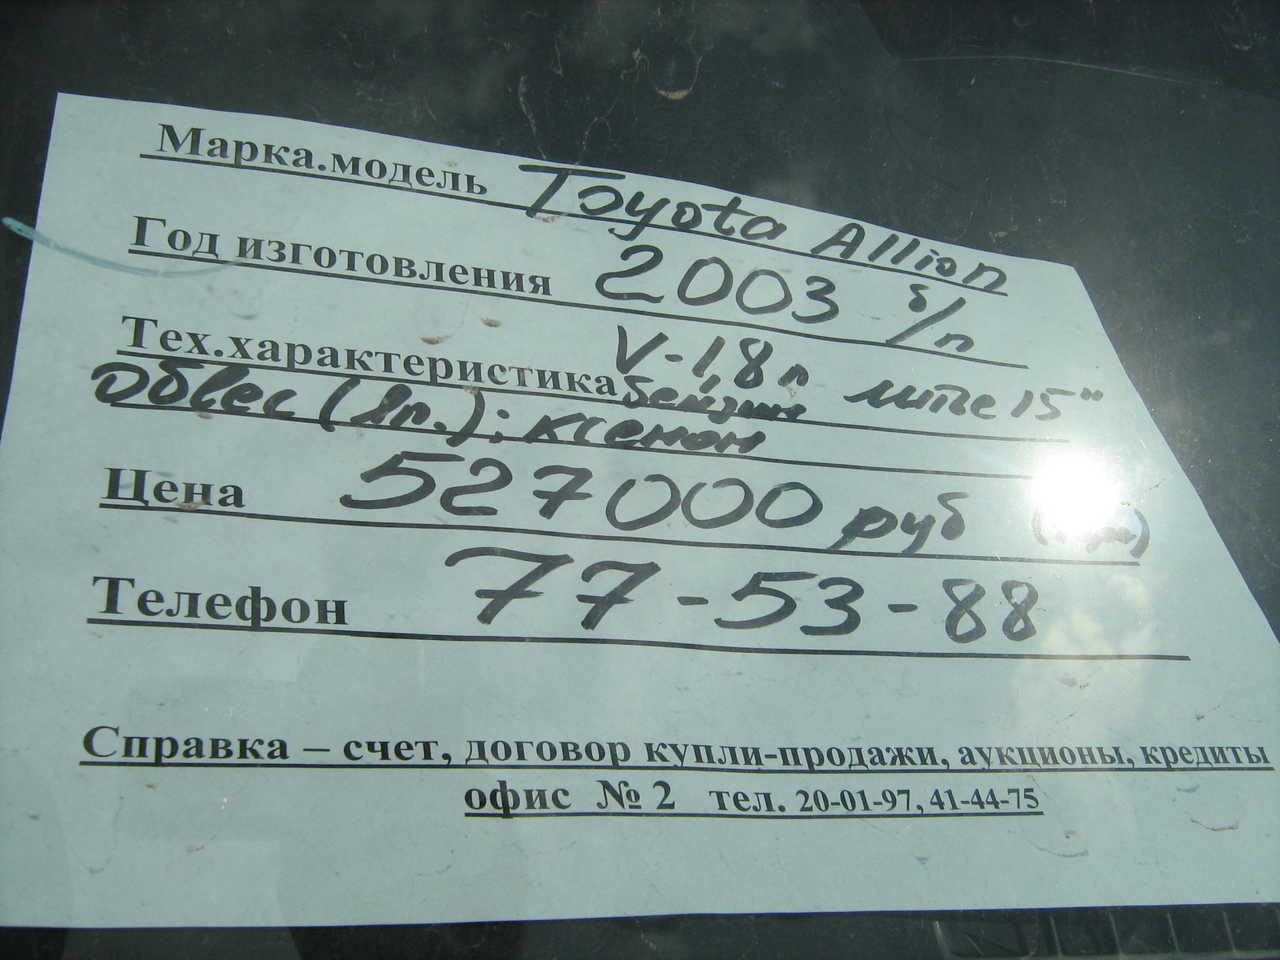 Марка.модель Toyota Allion
Год изготовления 2003 б/п
Тех.характеристика V-1,8 л бензин литье 15"
Обвес (Яп.); ксенон
Цена 527000 руб
Телефон 77-53-88
Справка – счет, договор купли-продажи, аукционы, кредиты
офис № 2 тел. 20-01-97, 41-44-75